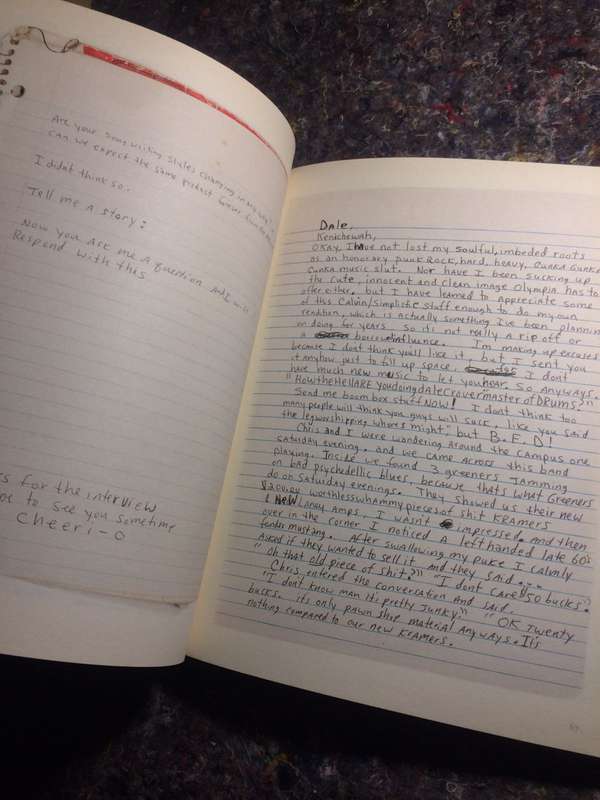 Are your song writing styles changing in any way?
can we expect the same product forever from the
I didnt think so.
Tell me a story:
Now you Ask me A question And
Respond with this
for the interview
to see you sometime
cheeri-o
Dale,
Kenichewah,
OKAY, I have not lost my soulful, imbeded roots
as an honorary punk Rock, hard, heavy, cunka cunka
cunka music slut. Nor have I been sucking up
the cute, innocent and clean image Olympia has to
offer, other, but I have learned to appreciate some
of this Calvin/simplistic stuff enough to do my own
rendition, which is actually something I've been planning
on doing for years, so its not really a rip off or
a borrowinfluence. I'm making up excuses
because I dont think you'll like it, but I sent you
it anyhow just to fill up space, I don't
have much new music to let you hear. So anyways.
"HowtheHellAREyoudoingdaleCrovermasterofDRUMS?"
Send me boom box stuff NOW! I don't think too
many people will think you guys will suck, like you said
the legworshipping whores might, but B.F.D!
Chris and I were wandering around the campus one
saturday evening. and we came Across this band
playing. Inside we found 3 greeners Jamming
on bad psychedellic blues, because thats what Greeners
do on Saturday evenings. They showed us their new
worthlesswhammypieces of shit KRAMERS
& New Laney Amps. I wasn't impressed. and then
over in the corner I noticed A left handed late 60's
fender mustang. After swallowing my puke I calmly
Asked if they wanted to sell it and they said ....
"Oh that old piece of shit?" "I don't care $50 bucks?
Chris entered the conversation and said
"I don't know man its pretty Junky." "OK Twenty
bucks. its only pawn shop material Anyways. It's
nothing compared to our new KRAMERS.